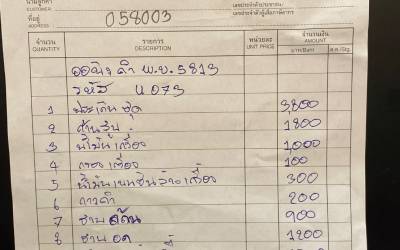 นามลูกค้า
CUSTOMER
ที่อยู่ 058003
ADDRESS
เลขประจำตัวผู้เสียภาษีอากร
จำนวน รายการ หน่วยละ จำนวนเงิน
QUANTITY DESCRIPTION UNIT PRICE AMOUNT
บาท/Baht ส.ต./Stg.
พ.ย. 5813
รหัส U073
1 ประเก็นชุด 3800
2 1800
3 น้ำมันเครื่อง 1,000
4 กรองเครื่อง 100
5 น้ำมันเบนซินล้างเครื่อง 300
6 กาวดำ 200
7 ชาบ 900
8 ชาบ อก 1200